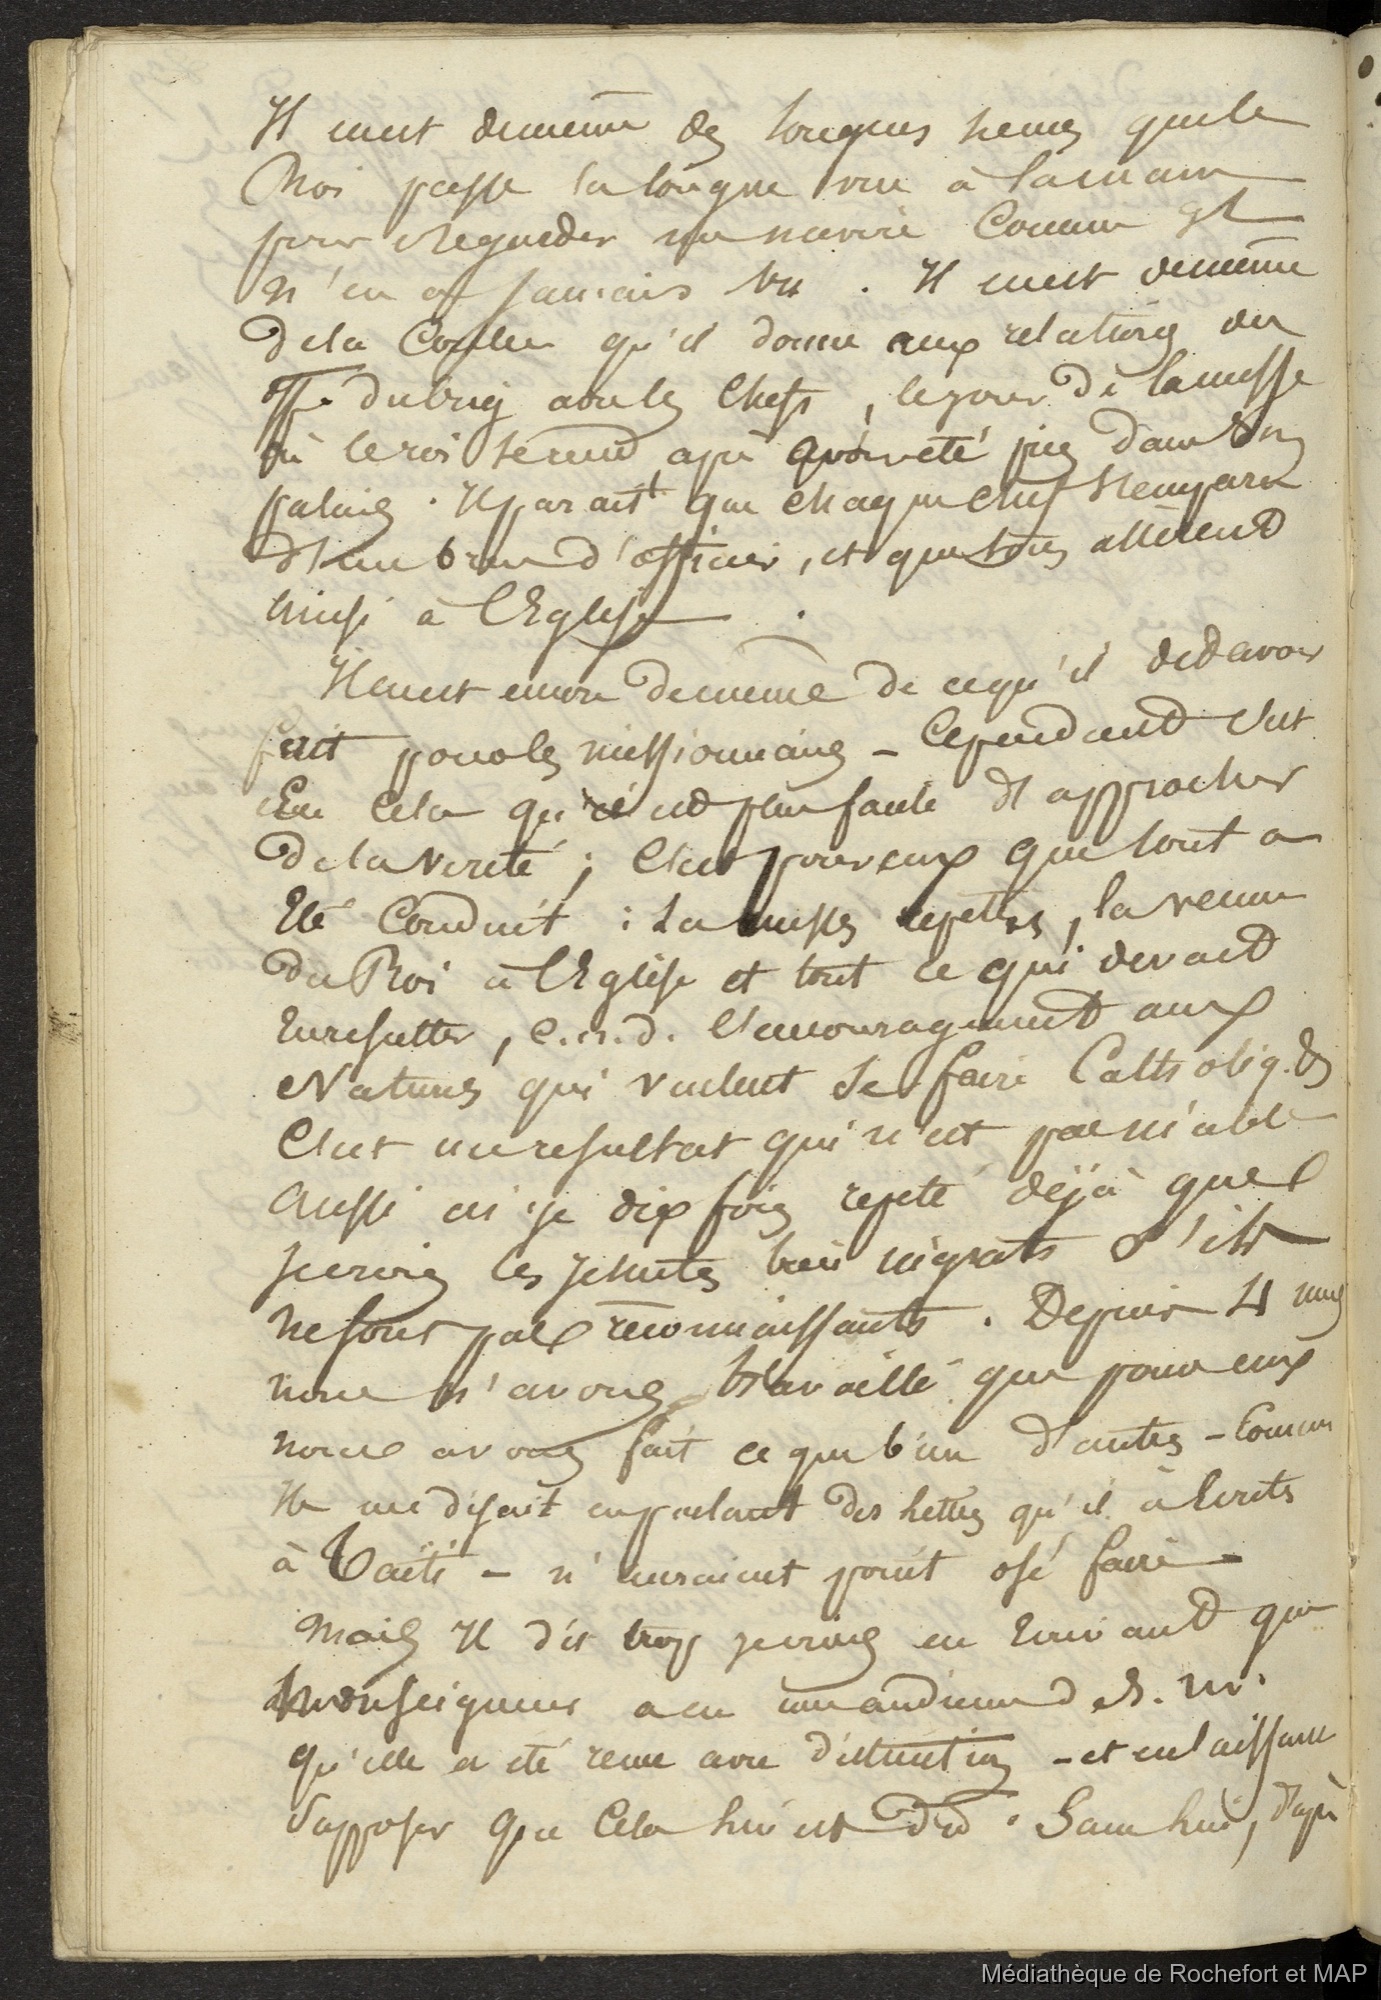 Il en est de même des longues heures que le
Roi passe la longue vue à la main
pour regarder un navire comme s'il
n'en eut jamais vu. Il en est de même
de la couleur qu'il donne aux relations des
off. du brig avec les chefs, le jour de la messe
où le roi se rend après qu'on eut été pris dans son
palais. Il parait que chaque chef s'empara
d'un bras d'officier, et que tous allèrent
ainsi à l'Eglise.
Il en est encore de même de ce qu'il dit avoir
fait pour les missionnaires - Cependant c'est
en cela qu'il est plus facile d'approcher
de la verité; c'est pour eux que tout a
été conduit: la messe, la venue
du Roi à l'Eglise et tout ce qui devait
en resulter, c.a.d. l'encouragement aux
Naturels qui veulent se faire Catholiq.
C'est un resultat qui n'est pas niable
aussi ai-je dix fois repeté déjà que
je crois les jesuites bien ingrats s'ils
ne sont pas reconnaissants. Depuis 4 mois
nous n'avons travaillé que pour eux
nous avons fait ce que bien d'autres - comme
il me disait en parlant des lettres qu'il a écrites
à Taïti - n'auraient point osé faire -
Mais il dit trop je crois en écrivant que
Monseigneur a eu une audience de S. M.
qu'elle a été reçue avec distinction - et en laissant
supposer que cela lui est dû. Sans lui, d'après